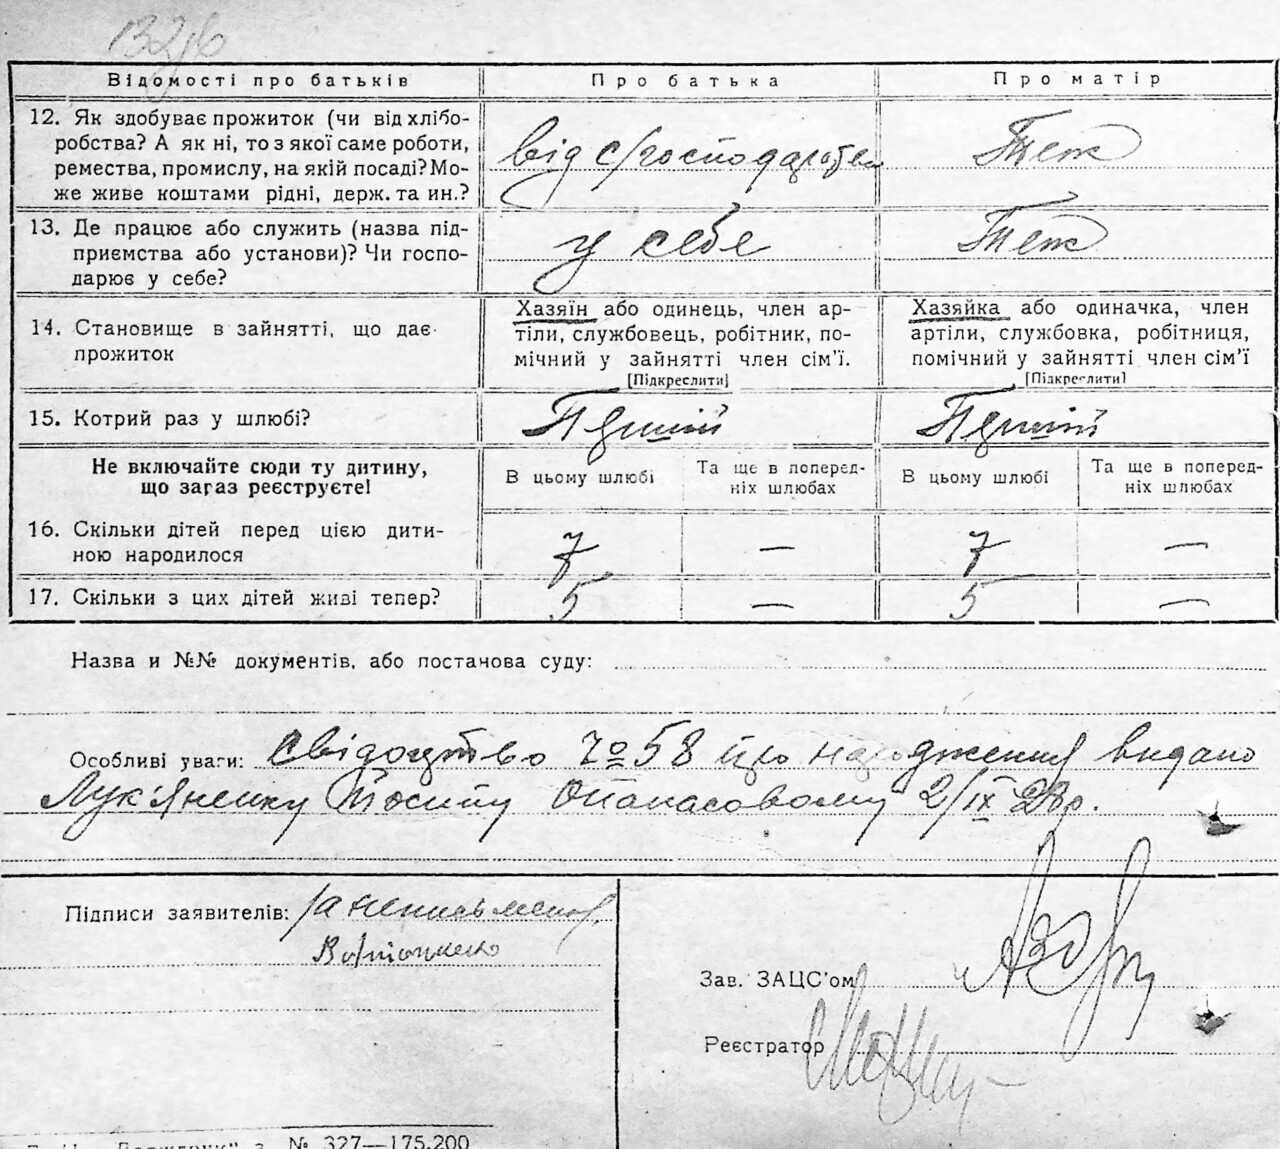 132/6
Відомості про батьків Про батька Про матір
12. Як здобуває прожиток (чи від хлібо-
робства? А як ні, то з якої саме роботи,
ремества, промислу, на якій посаді? Мо-
же живе коштами рідні, держ. та ин.?
від с/господарства Теж
13. Де працює або служить (назва під-
приємства або установи)? Чи госпо-
дарює у себе?
у себе Теж
14. Становище в зайнятті, що дає
прожиток
Хазяїн або одинець, член ар-
тіли, службовець, робітник, по-
мічний у зайнятті член сім'ї.
[Підкреслити]
Хазяйка або одиначка, член
артіли, службовка, робітниця,
помічний у зайнятті член сім'ї
[Підкреслити]
15. Котрий раз у шлюбі? Перший Перший
Не включайте сюди ту дитину,
що зараз реєструєте!
В цьому шлюбі Та ще в поперед-
ніх шлюбах В цьому шлюбі Та ще в поперед-
ніх шлюбах
16. Скільки дітей перед цією дити-
ною народилося
7 — 7 —
17. Скільки з цих дітей живі тепер? 5 — 5 —
Назва и №№ документів, або постанова суду:
Особливі уваги: свідоцтво № 58 про народження видано
Лук'яненку Йосипу Опанасовому 2/IX 28р.
Підписи заявителів: за неписьменог.
Зав. ЗАЦС'ом
Реєстратор
№ 327—175.200